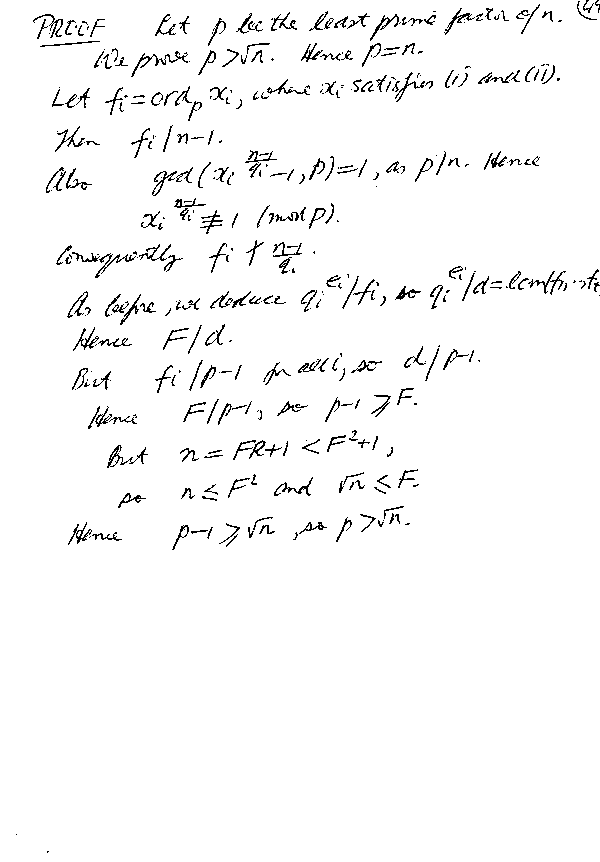 PROOF Let p be the least prime factor of n.
We prove p > √n. Hence p = n.
Let fi = ord_p xi, where xi satisfies (i) and (ii).
Then fi | n−1.
Also gcd(xi^{(n−1)/qi} − 1, p) = 1, as p | n. Hence
xi^{(n−1)/qi} ≢ 1 (mod p).
Consequently fi ∤ (n−1)/qi.
As before, we deduce qi^{ei} | fi, so qi^{ei} | d = lcm(f1,
Hence F | d.
But fi | p−1 for all i, so d | p−1.
Hence F | p−1, so p−1 ⩾ F.
But n = FR+1 < F²+1,
so n ≤ F² and √n ≤ F.
Hence p−1 ⩾ √n, so p > √n.